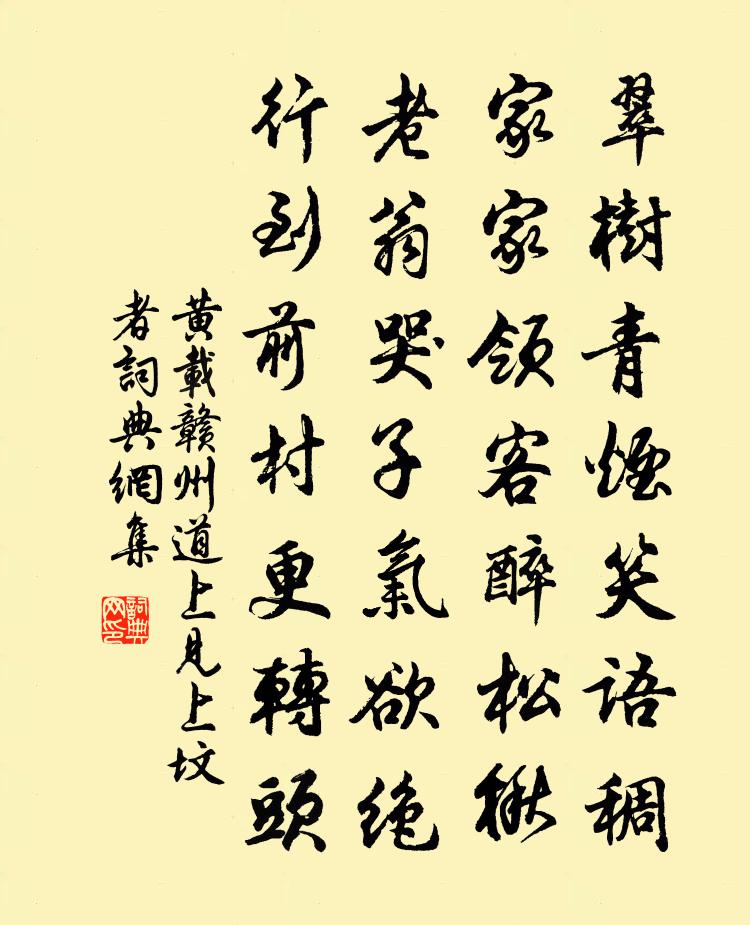 翠樹青煙笑語稠
家家領客醉松楸
老翁哭子氣欲絶
行到前村更轉頭
黄載赣州道上見上坟
者詞典網集
詞典网印